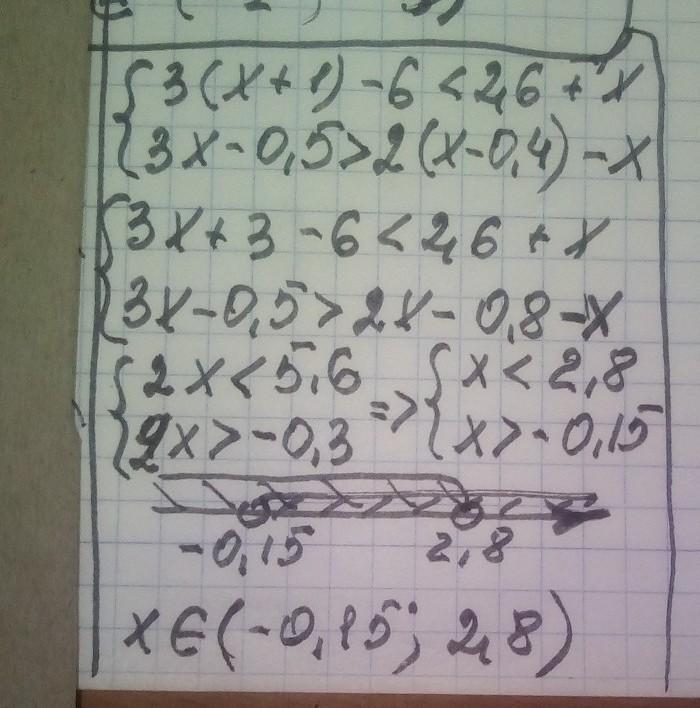 3(x+1)-6<2,6+x
3x-0,5>2(x-0,4)-x
3x+3-6<2,6+x
3x-0,5>2x-0,8-x
2x<5,6 => x<2,8
2x>-0,3 x>-0,15
-0,15 2,8
x∈(-0,15; 2,8)